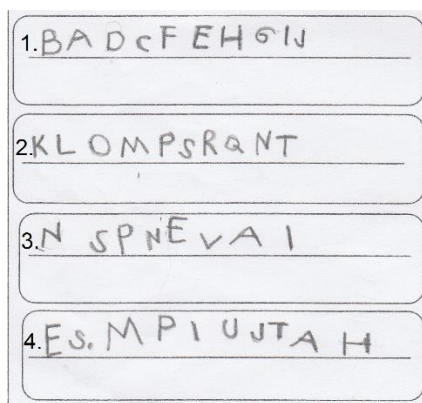 1. B A D C F E H G I J
2. K L O M P S R Q N T
3. N S P N E V A I
4. E S. M P I U J T A H